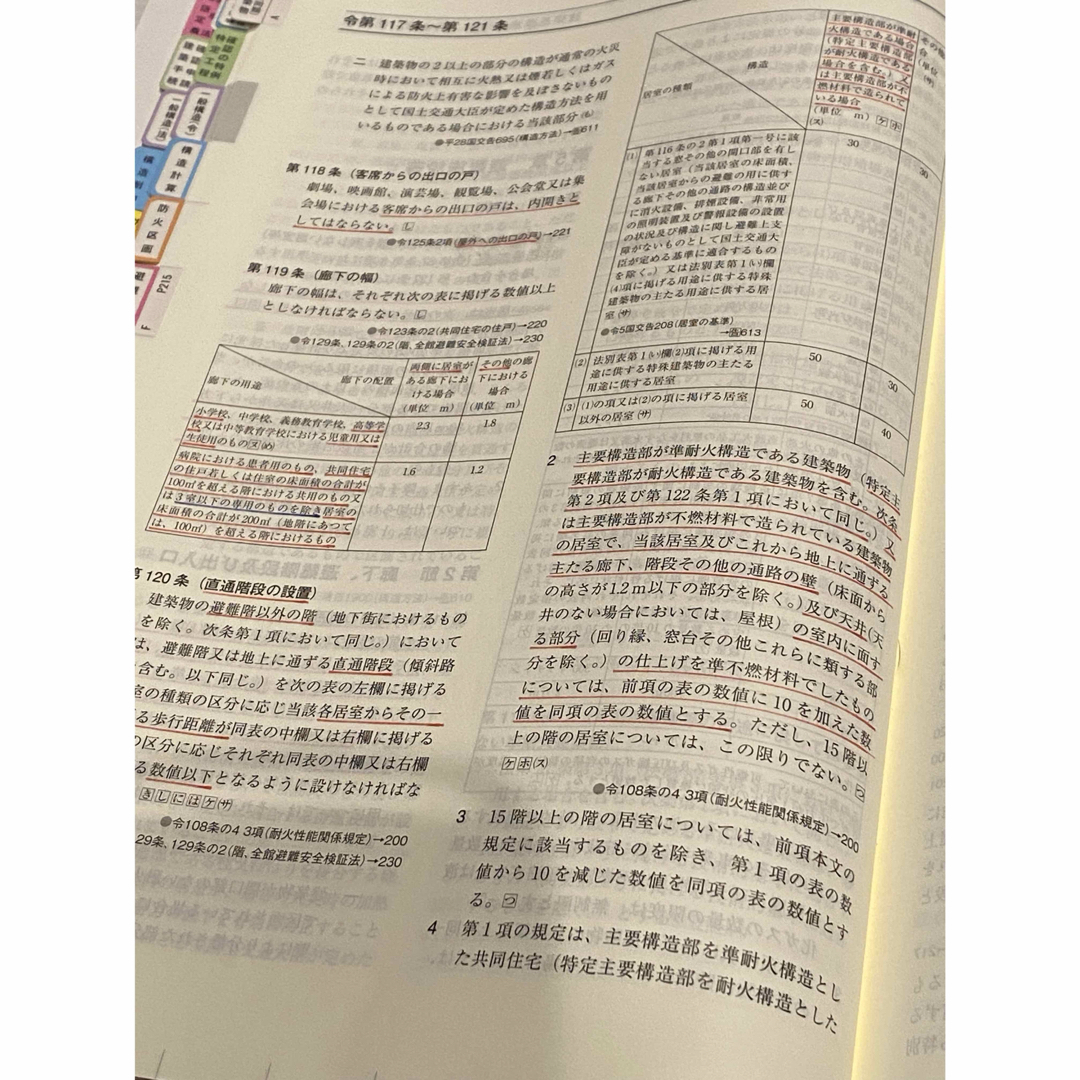 令第117条～第121条
二 建築物の2以上の部分の構造が通常の火災
時において相互に火熱又は煙若しくはガス
による防火上有害な影響を及ぼさないもの
として国土交通大臣が定めた構造方法を用
いるものである場合における当該部分(も)
●平28国交告695(構造方法)→告611
第118条(客席からの出口の戸)
劇場、映画館、演芸場、観覧場、公会堂又は集
会場における客席からの出口の戸は、内開きと
してはならない。し
●令125条2項(屋外への出口の戸)→221
第119条(廊下の幅)
廊下の幅は、それぞれ次の表に掲げる数値以上
としなければならない。し
●令123条の2(共同住宅の住戸)→220
●令129条、129条の2(階、全館避難安全検証法)→230
廊下の配置
廊下の用途
両側に居室が
ある廊下にお
ける場合
(単位 m)
その他の廊
下における
場合
(単位 m)
小学校、中学校、義務教育学校、高等学
校又は中等教育学校における児童用又は
生徒用のもの(ヌ)(め)
2.3
1.8
病院における患者用のもの、共同住宅
の住戸若しくは住室の床面積の合計が
100㎡を超える階における共用のもの又
は3室以下の専用のものを除き居室の
床面積の合計が200㎡(地階にあつて
は、100㎡)を超える階におけるもの
1.6
1.2
第120条(直通階段の設置)
建築物の避難階以外の階(地下街におけるもの
を除く。次条第1項において同じ。)において
は、避難階又は地上に通ずる直通階段(傾斜路
含む。以下同じ。)を次の表の左欄に掲げる
室の種類の区分に応じ当該各居室からその一
る歩行距離が同表の中欄又は右欄に掲げる
の区分に応じそれぞれ同表の中欄又は右欄
る数値以下となるように設けなければな
きしにはケ(サ)
●令108条の4 3項(耐火性能関係規定)→200
29条、129条の2(階、全館避難安全検証法)→230
構造
居室の種類
主要構造部が準耐
火構造である場合
(特定主要構造部
が耐火構造である
場合を含む。)又
は主要構造部が不
燃材料で造られて
いる場合
(単位 m) ケホ
(ス)
(1) 第116条の2第1項第一号に該
当する窓その他の開口部を有し
ない居室(当該居室の床面積、
当該居室からの避難の用に供す
る廊下その他の通路の構造並び
に消火設備、排煙設備、非常用
の照明装置及び警報設備の設置
の状況及び構造に関し避難上支
障がないものとして国土交通大
臣が定める基準に適合するもの
を除く。)又は法別表第1(い)欄
(4)項に掲げる用途に供する特殊
建築物の主たる用途に供する居
室(サ)
●令5国交告208(居室の基準)
→告613
30
30
(2) 法別表第1(い)欄(2)項に掲げる用
途に供する特殊建築物の主たる
用途に供する居室
50
30
(3) (1)の項又は(2)の項に掲げる居室
以外の居室(サ)
50
40
2 主要構造部が準耐火構造である建築物(特定主
要構造部が耐火構造である建築物を含む。次条
第2項及び第122条第1項において同じ。)又
は主要構造部が不燃材料で造られている建築物
の居室で、当該居室及びこれから地上に通ずる
主たる廊下、階段その他の通路の壁(床面から
の高さが1.2m以下の部分を除く。)及び天井(天
井のない場合においては、屋根)の室内に面す
る部分(回り縁、窓台その他これらに類する部
分を除く。)の仕上げを準不燃材料でしたもの
については、前項の表の数値に10を加えた数
値を同項の表の数値とする。ただし、15階以
上の階の居室については、この限りでない。つ
ケホ(ス)
●令108条の4 3項(耐火性能関係規定)→200
3 15階以上の階の居室については、前項本文の
規定に該当するものを除き、第1項の表の数
値から10を減じた数値を同項の表の数値とす
る。つ
4 第1項の規定は、主要構造部を準耐火構造とし
た共同住宅(特定主要構造部を耐火構造とした
確認の特例
特定工程
建築手続
確認申請
一般構造(法)
一般構造(令)
構造計算
防火区画
P215